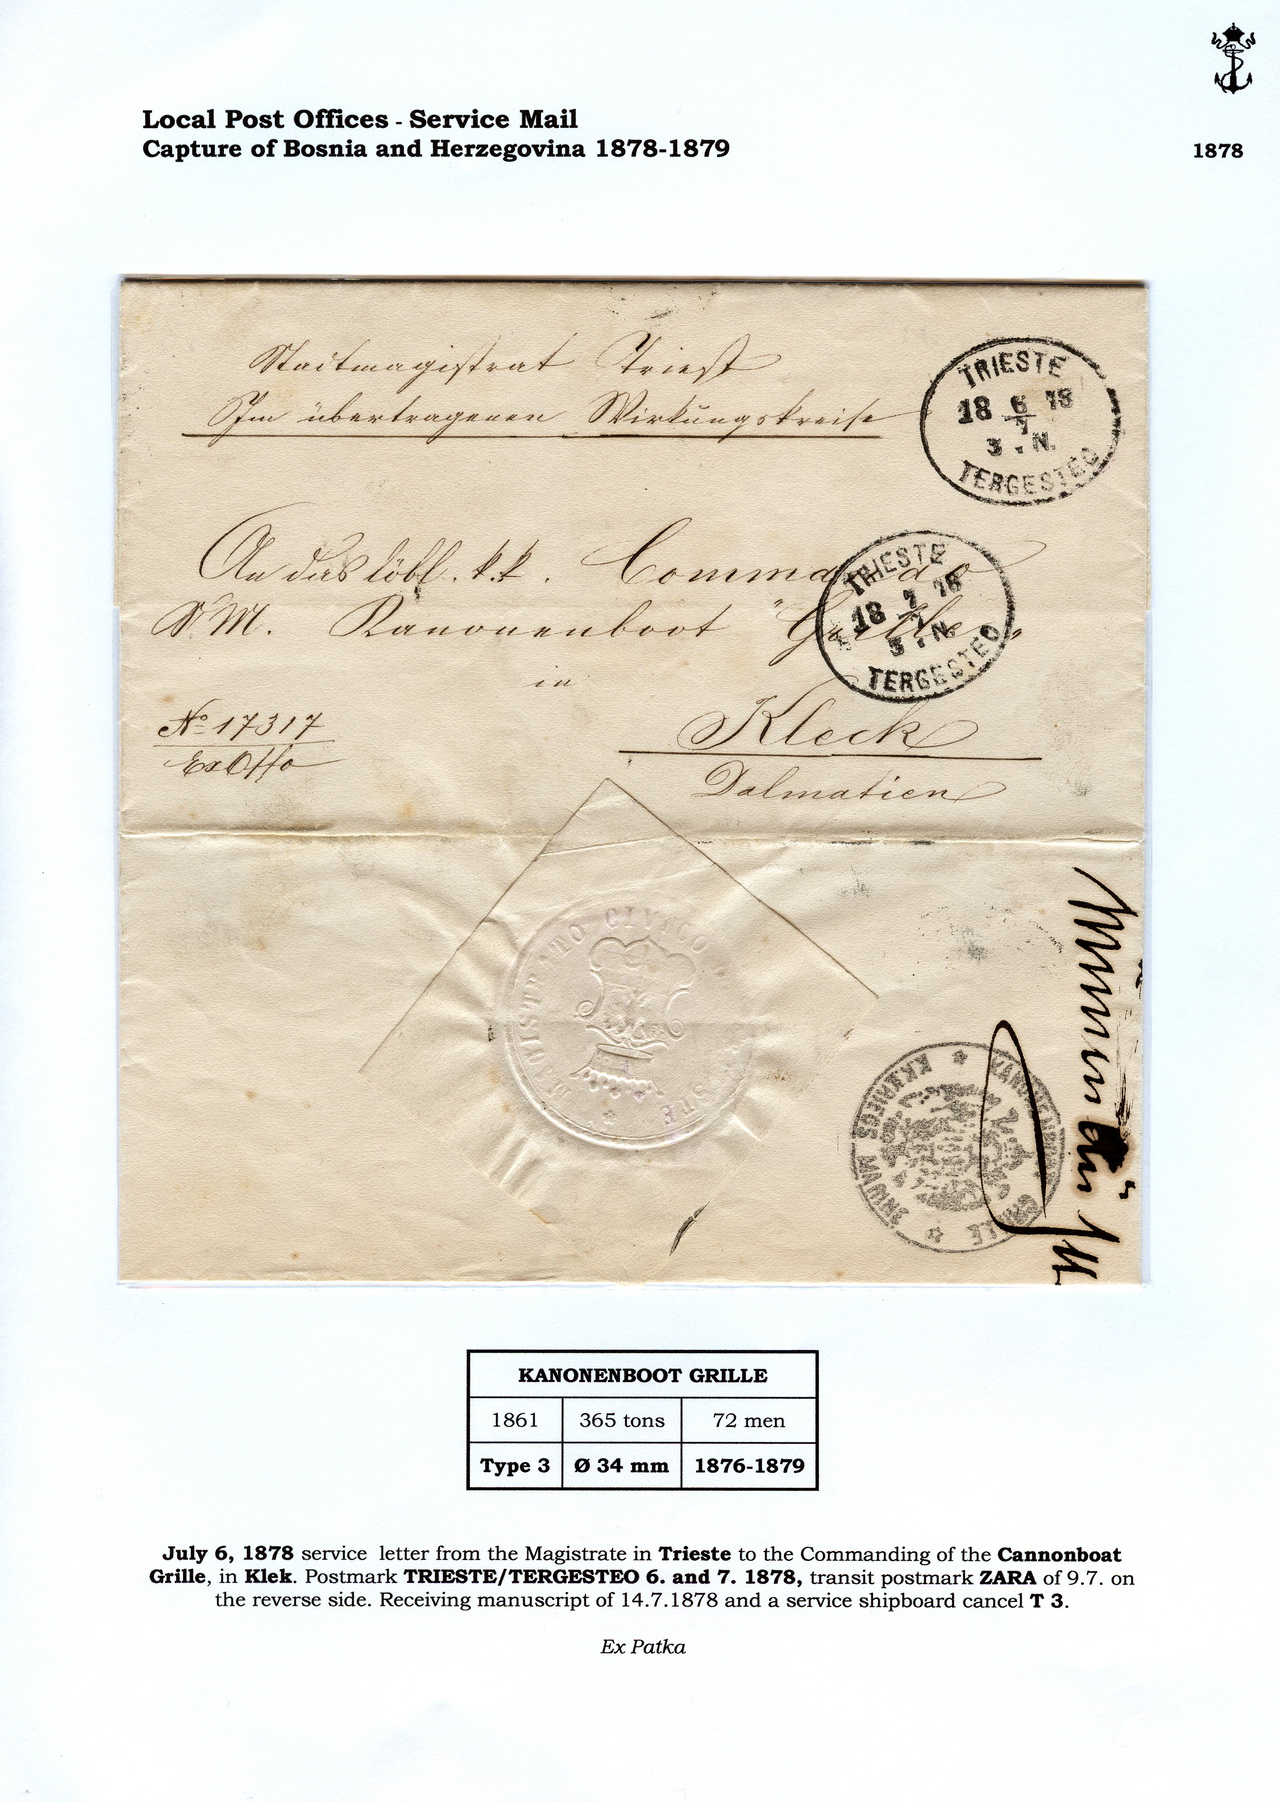 Local Post Offices - Service Mail
Capture of Bosnia and Herzegovina 1878-1879
1878
Stadtmagistrat Triest
Im übertragenen Wirkungskreise
TRIESTE
18 6/7 78
3 . N.
TERGESTEO
An das löbl. k.k. Commando
S.M. Kanonenboot "Grille"
in
Kleck
Dalmatien
TRIESTE
18 7/7 78
3 . N.
TERGESTEO
No 17317
Ex Offo
MAGISTRATO CIVICO
K.K. KRIEGS MARINE
GRILLE
KANONENBOOT GRILLE
1861 365 tons 72 men
Type 3 Ø 34 mm 1876-1879
July 6, 1878 service letter from the Magistrate in Trieste to the Commanding of the Cannonboat
Grille, in Klek. Postmark TRIESTE/TERGESTEO 6. and 7. 1878, transit postmark ZARA of 9.7. on
the reverse side. Receiving manuscript of 14.7.1878 and a service shipboard cancel T 3.
Ex Patka